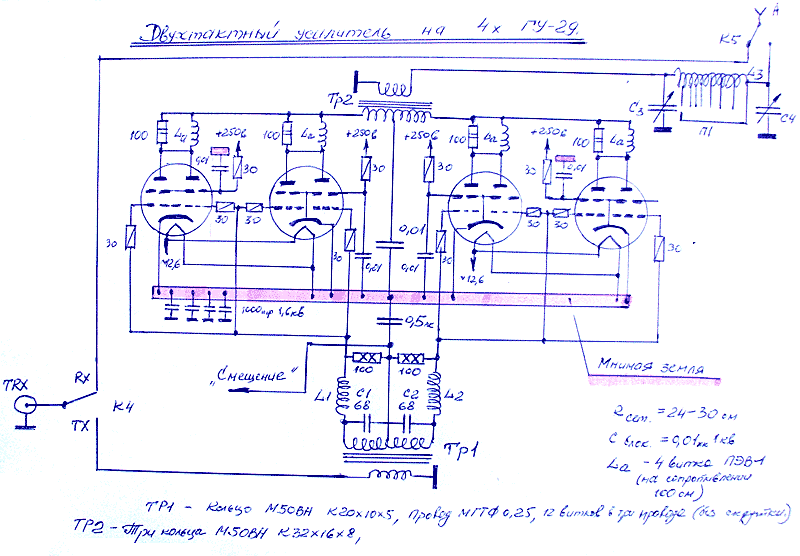 Двухтактный усилитель на 4х ГУ-29.
A
K5
L3
C3
C4
П1
Тр2
100
La
+250В
0,01
30
100
La
+250В
30
+250В
30
100
La
+250В
30
0,01
100
La
30
30
30
30
0,01
0,01
0,01
30
30
30
30
~12,6
~12,6
1000пф 1,6кв
0,5мк
Мнимая земля
„Смещение"
100
100
L1
C1
68
C2
68
L2
Тр1
TRX
RX
TX
K4
Rсет. = 24-30 ом
C блок. = 0,01мк 1кв
La - 4 витка ПЭВ-1
(на сопротивлении
100 ом)
ТР1 - Кольцо М50ВН К20х10х5, провод МГТФ 0,25, 12 витков в три провода (без скрутки.)
ТР2 - Три кольца М50ВН К32х16х8,